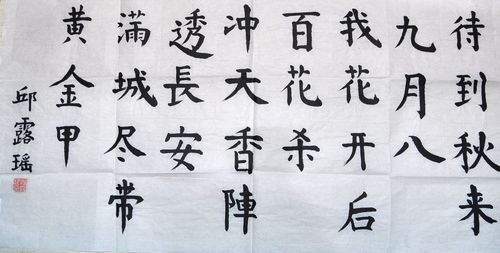 待到秋来
九月八
我花开后
百花杀
冲天香陣
透長安
滿城尽带
黄金甲
邱露瑶